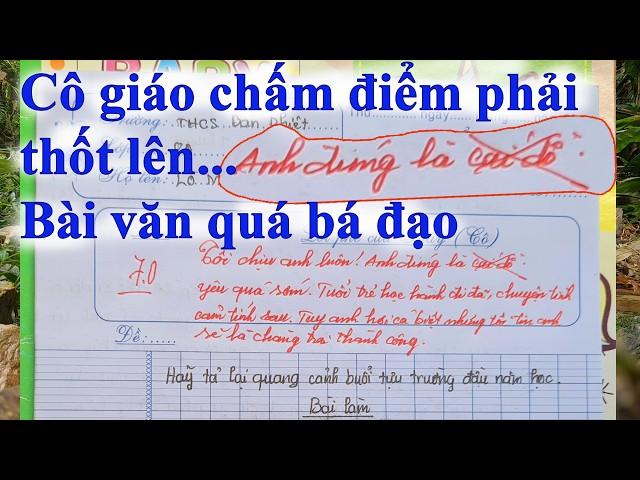 BABY
Cô giáo chấm điểm phải
Trường: THCS Dan Phiệt
Thứ ngày
thốt lên...
Anh đúng là cái đồ
Họ tên: LQ. M
Bài văn quá bá đạo
Lời phê của (Cô)
7.0
Tôi chịu anh luôn! Anh đúng là cái đồ
yêu quá sớm. Tuổi trẻ học hành đi đã, chuyện tình
cảm tính sau. Tuy anh hơi cá biệt nhưng tôi tin anh
sẽ là chàng trai thành công.
Đề:
Hãy tả lại quang cảnh buổi tựu trường đầu năm học.
Bài làm